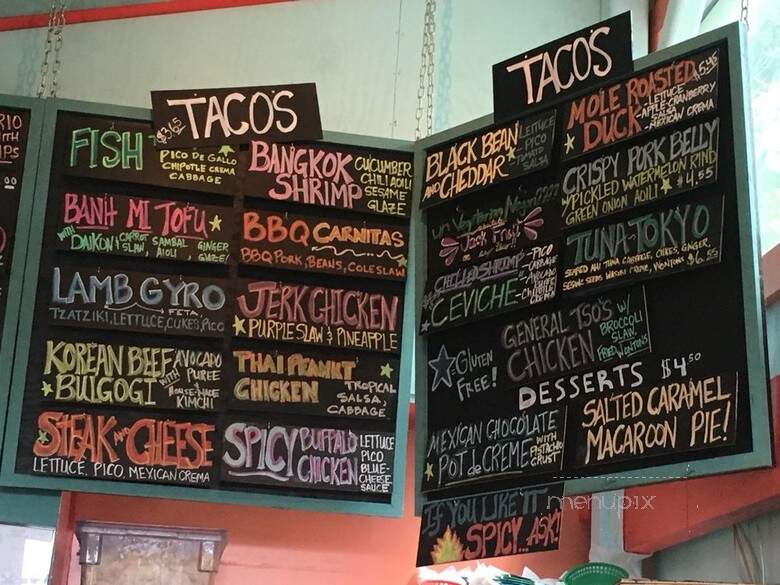 TACOS
$3.65
FISH
PICO DE GALLO
CHIPOTLE CREMA
CABBAGE
BANH MI TOFU
WITH DAIKON & CARROT SLAW, SAMBAL AIOLI, GINGER GLAZE
LAMB GYRO
FETA,
TZATZIKI, LETTUCE, CUKES, PICO
KOREAN BEEF
BULGOGI
WITH AVOCADO
PUREE
HOUSE-MADE
KIMCHI
STEAK AND CHEESE
LETTUCE, PICO, MEXICAN CREMA
BANGKOK
SHRIMP
CUCUMBER
CHILI AOLI
SESAME
GLAZE
BBQ CARNITAS
BBQ PORK, BEANS, COLESLAW
JERK CHICKEN
PURPLE SLAW & PINEAPPLE
THAI PEANUT
CHICKEN
TROPICAL
SALSA,
CABBAGE
SPICY BUFFALO
CHICKEN
LETTUCE
PICO
BLUE-
CHEESE
SAUCE
TACOS
BLACK BEAN
AND CHEDDAR
LETTUCE
PICO
TOMATO
SALSA
Jack Fruit
CHILLED SHRIMP
CEVICHE
-PICO
-CABBAGE
-AVOCADO
PUREE
-CHIPOTLE
CREMA
GLUTEN
FREE!
MOLE ROASTED
DUCK
$5.45
-LETTUCE
-APPLE-CRANBERRY
-MEXICAN CREMA
CRISPY PORK BELLY
W/ PICKLED WATERMELON RIND
GREEN ONION AOILI $4.55
TUNA-TOKYO
SEARED AHI TUNA, CABBAGE, CUKES, GINGER,
SESAME SEEDS, WASABI CREMA, WONTONS $6.55
GENERAL TSO'S
CHICKEN
W/ BROCCOLI
SLAW,
FRIED WONTONS
DESSERTS $4.50
MEXICAN CHOCOLATE
POT de CREME
WITH
PISTACHIO
CRUST
SALTED CARAMEL
MACAROON PIE!
IF YOU LIKE IT
SPICY... ASK!
menupix